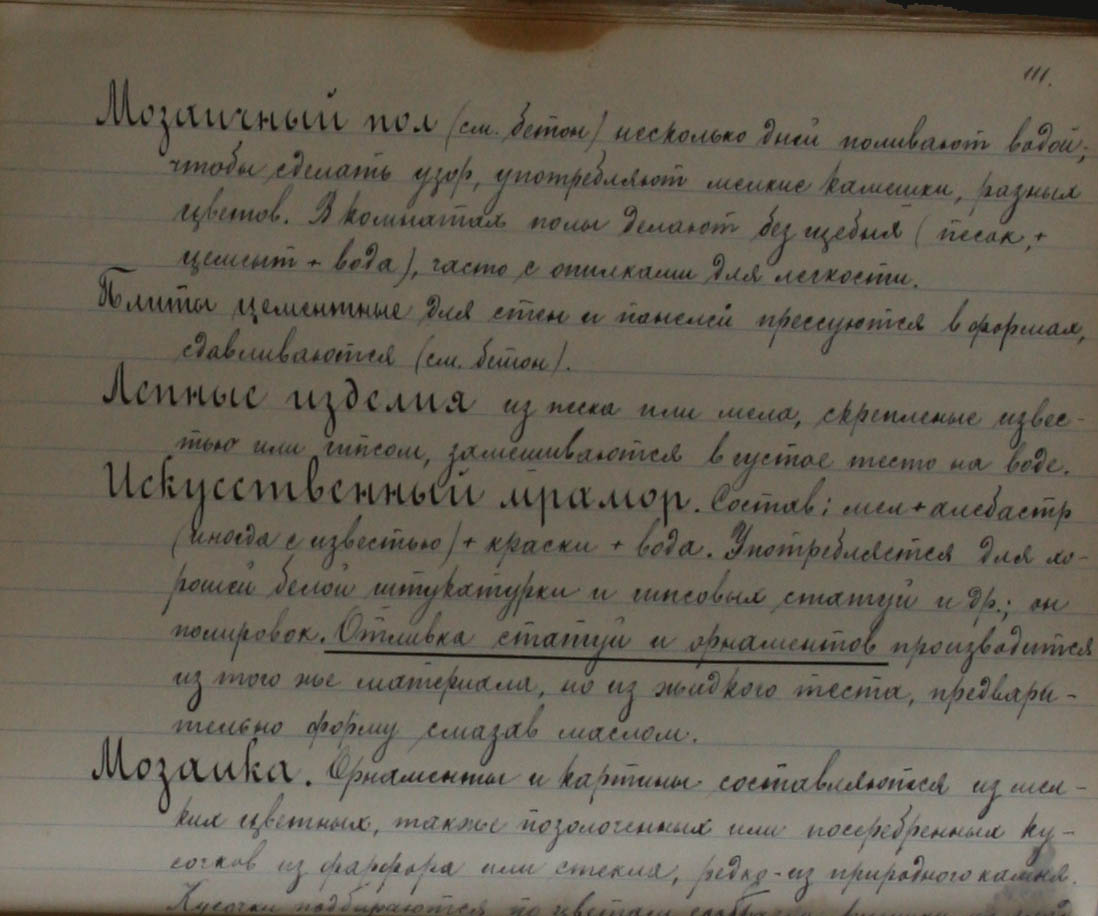 111.
Мозаичный пол (см. бетон) несколько дней поливают водой;
чтобы сделать узор, употребляют мелкие камешки, разных
цветов. В комнатах полы делают без щебня (песок, +
цемент + вода), часто с опилками для легкости.
Плиты цементные для стен и панелей прессуются в формах,
сдавливаются (см. бетон).
Лепные изделия из песка или мела, скрепленые извес-
тью или гипсом, замешиваются в густое тесто на воде.
Искусственный мрамор. Состав: мел + алебастр
(иногда с известью) + краски + вода. Употребляется для хо-
рошей белой штукатурки и гипсовых статуй и др.; он
полировок. Отливка статуй и орнаментов производится
из того же материала, но из жидкого теста, предвари-
тельно форму смазав маслом.
Мозаика. Орнаменты и картины составляются из мел-
ких цветных, также позолоченных или посеребренных ку-
сочков из фарфора или стекла, редко - из природного камня.
Кусочки подбираются по цветам